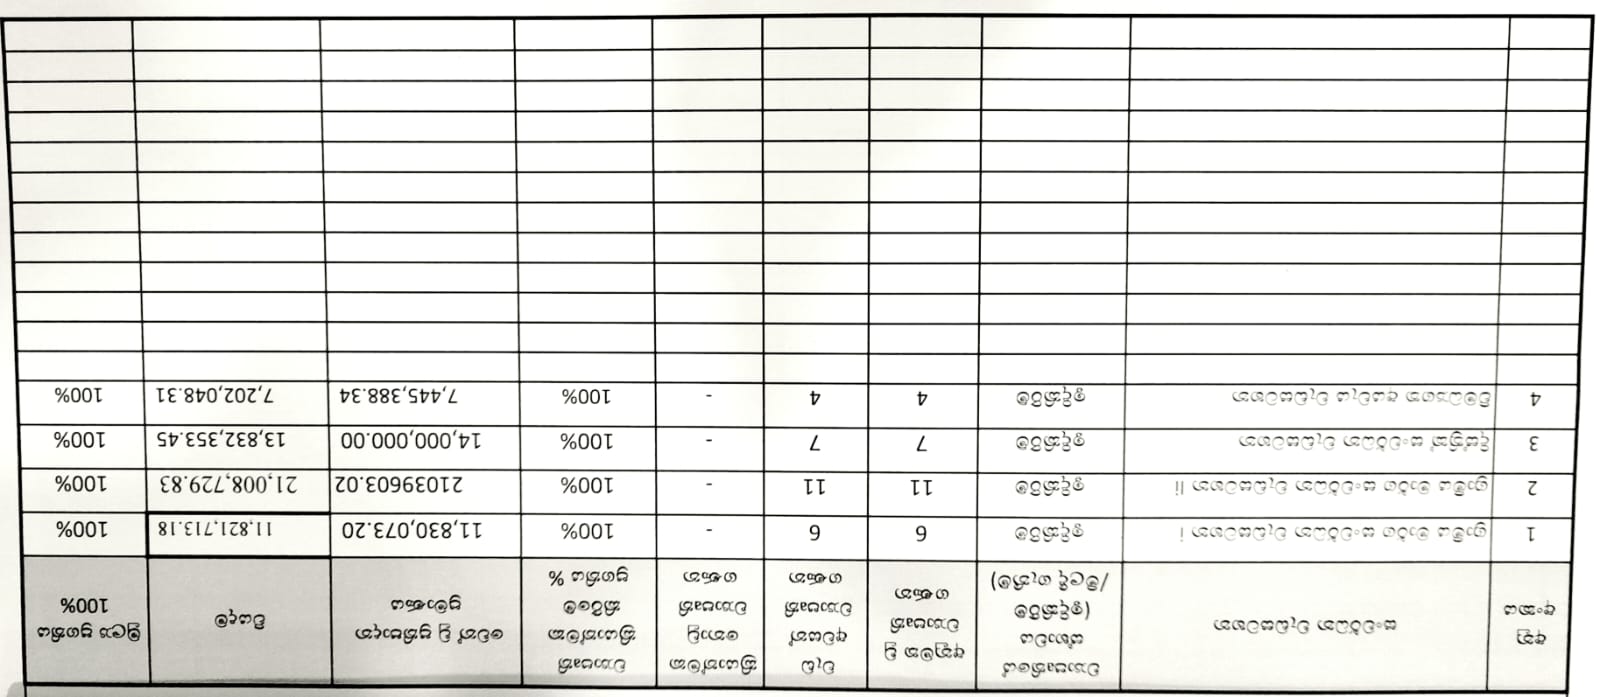 අනු
අංකය
සංවර්ධන වැඩසටහන
ව්‍යාපෘතියේ
ස්වභාවය
(ඉදිකිරීම්
/මිලදී ගැනීම්)
අනුමත වූ
ව්‍යාපෘති
ගණන
වැඩ
අවසන්
ව්‍යාපෘති
ගණන
ක්‍රියාත්මක
නොවූ
ව්‍යාපෘති
ගණන
ව්‍යාපෘති
ක්‍රියාත්මක
කිරීමේ
ප්‍රගතිය %
වෙන් වූ ප්‍රතිපාදන
ප්‍රමාණය
වියදම්
මූල්‍ය ප්‍රගතිය
100%
1 ග්‍රාමීය මාර්ග සංවර්ධන වැඩසටහන i ඉදිකිරීම් 6 6 - 100% 11,830,073.20 11,821,713.18 100%
2 ග්‍රාමීය මාර්ග සංවර්ධන වැඩසටහන ii ඉදිකිරීම් 11 11 - 100% 21039603.02 21,008,729.83 100%
3 දිස්ත්‍රික් සංවර්ධන වැඩසටහන ඉදිකිරීම් 7 7 - 100% 14,000,000.00 13,832,353.45 100%
4 විමධ්‍යගත අයවැය වැඩසටහන ඉදිකිරීම් 4 4 - 100% 7,445,388.34 7,202,048.31 100%